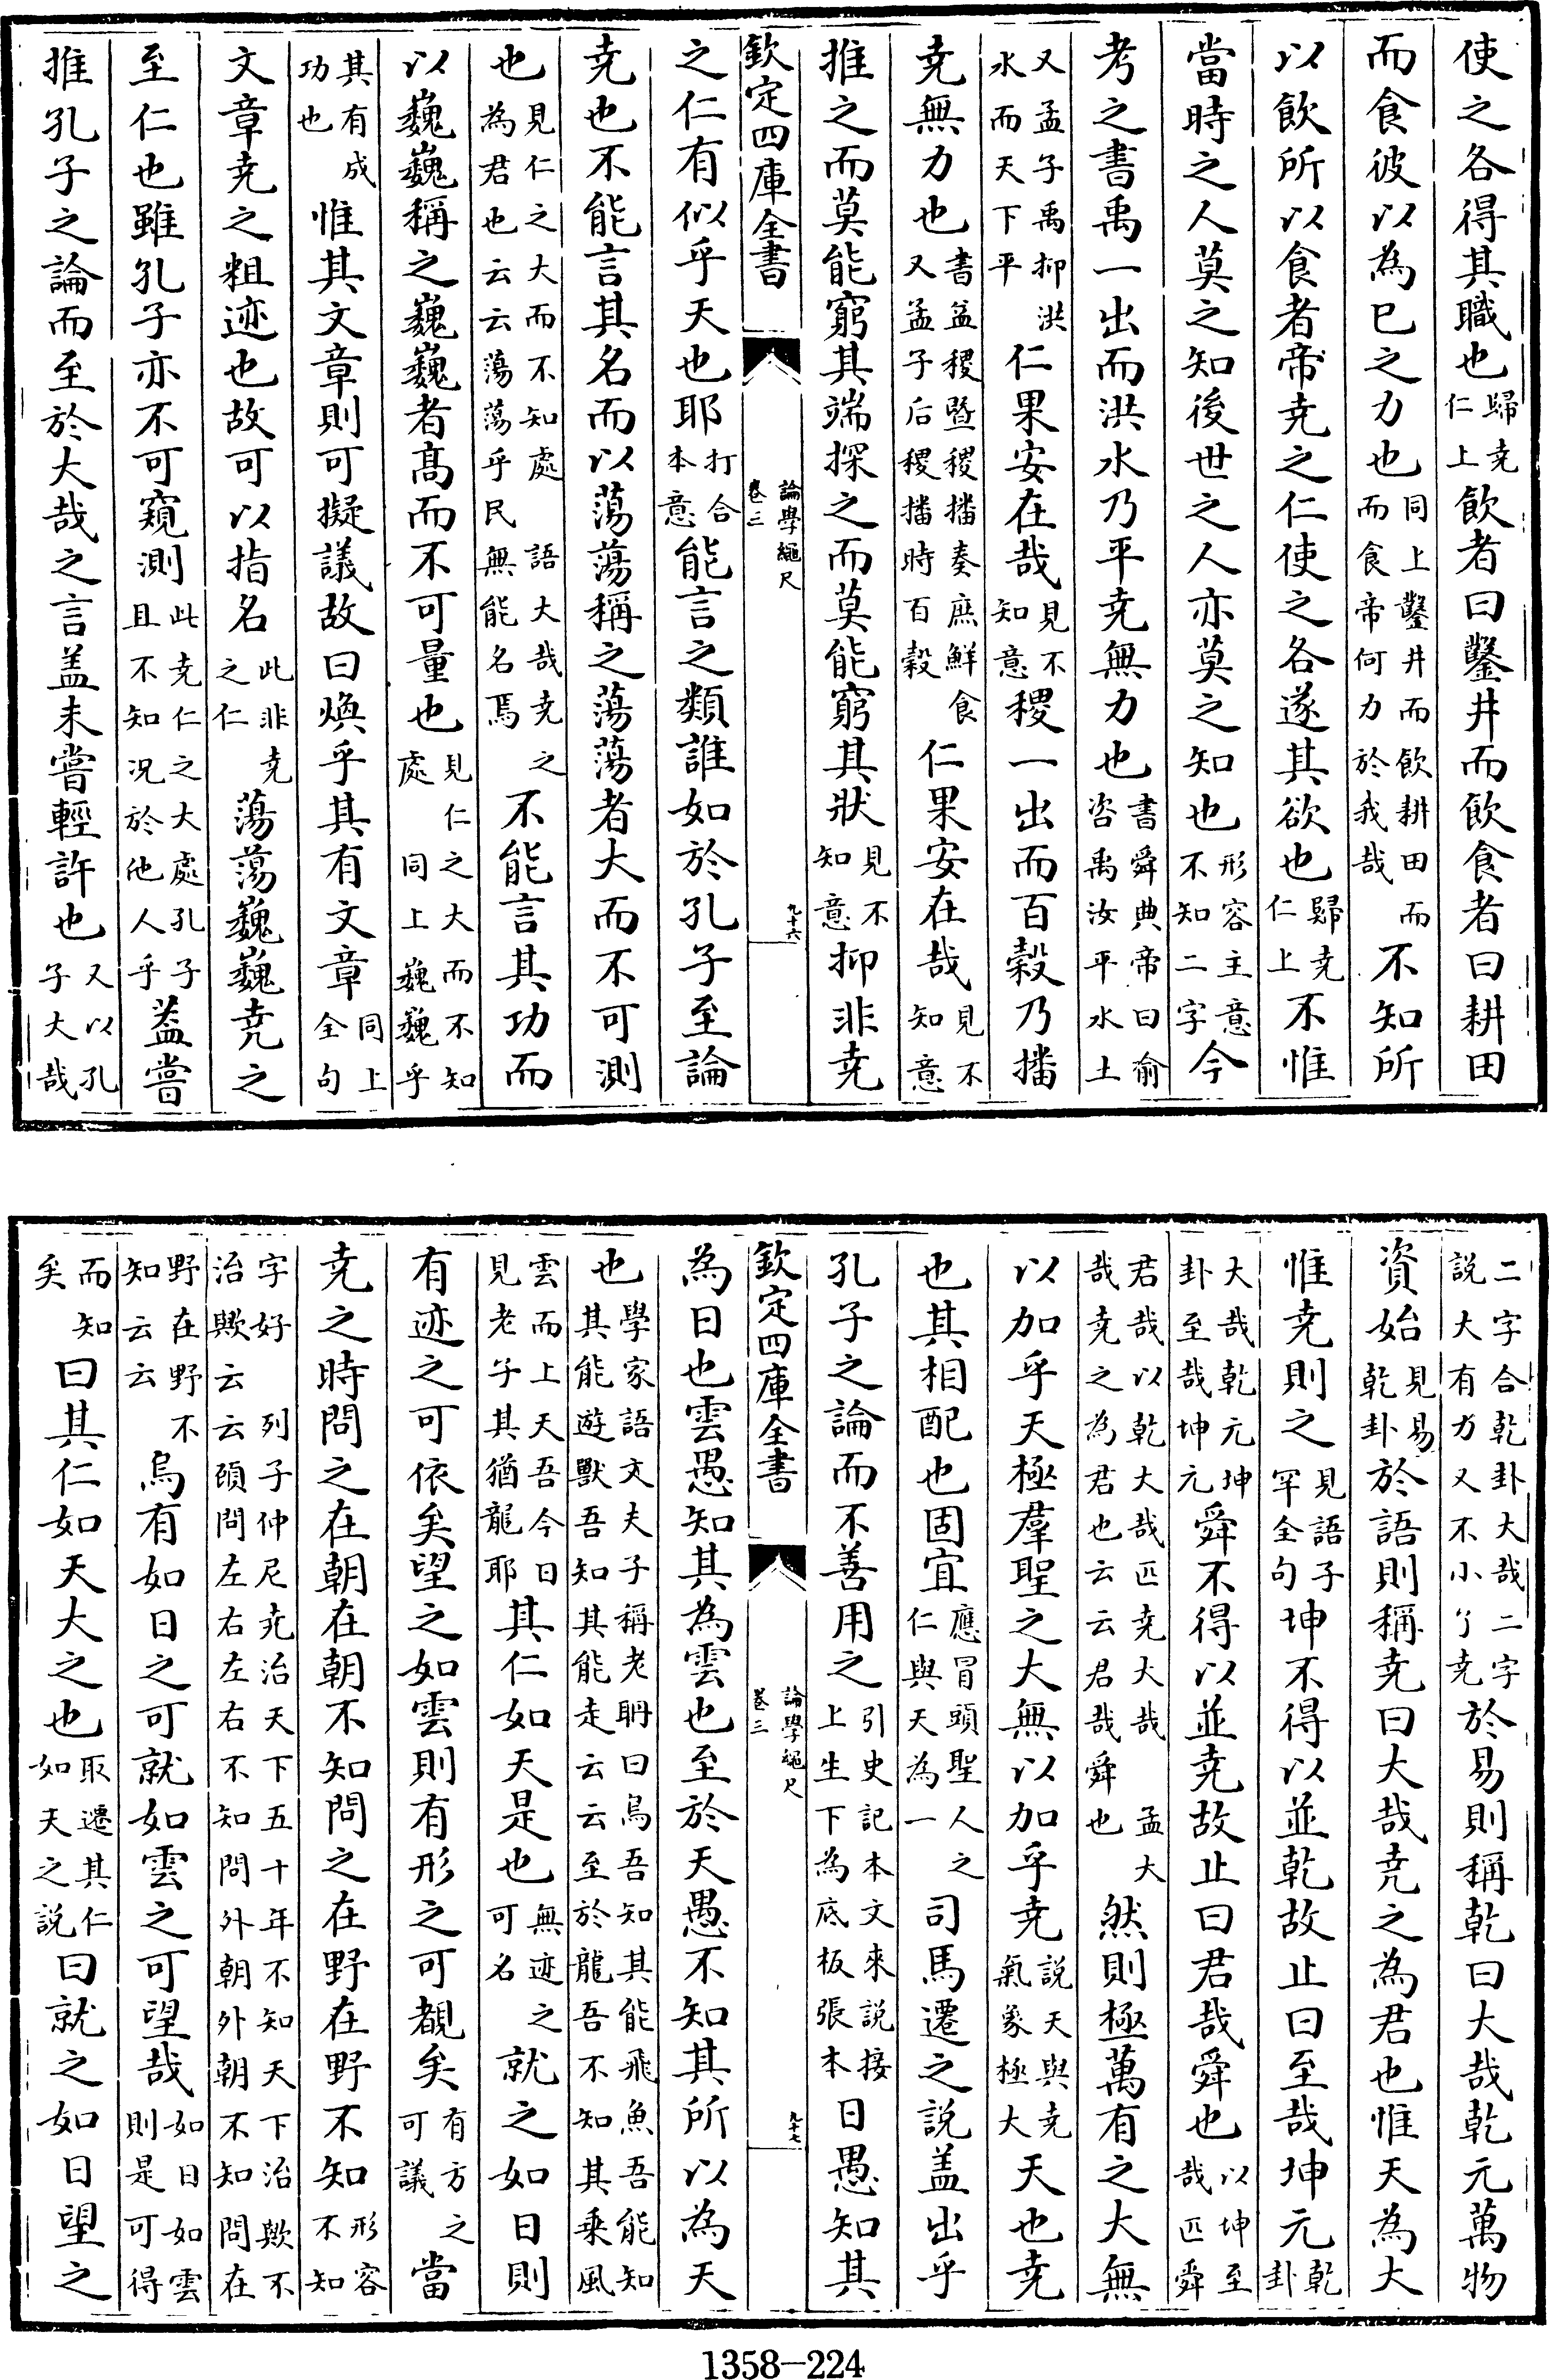 使之各得其職也歸堯仁上飲者曰鑿井而飲食者曰耕田
而食彼以為已之力也同上鑿井而飲耕田而而食帝何力於我哉不知所
以飲所以食者帝堯之仁使之各遂其欲也歸堯仁上不惟
當時之人莫之知後世之人亦莫之知也形容主意不知二字今
考之書禹一出而洪水乃平堯無力也書舜典帝曰俞咨禹汝平水土
又孟子禹抑洪水而天下平仁果安在哉見不知意稷一出而百穀乃播
堯無力也書益稷暨稷播奏庶鮮食又孟子后稷播時百穀仁果安在哉見不知意
推之而莫能窮其端探之而莫能窮其狀見不知意抑非堯
欽定四庫全書
論學繩尺
卷三
九十六
之仁有似乎天也耶打合本意能言之類誰如於孔子至論
堯也不能言其名而以蕩蕩稱之蕩蕩者大而不可測
也見仁之大而不知處語大哉堯之為君也云云蕩蕩乎民無能名焉不能言其功而
以巍巍稱之巍巍者髙而不可量也見仁之大而不知處同上巍巍乎
其有成功也惟其文章則可擬議故曰煥乎其有文章同上全句
文章堯之粗迹也故可以指名此非堯之仁蕩蕩巍巍堯之
至仁也雖孔子亦不可窺測此堯仁之大處孔子且不知况於他人乎葢嘗
推孔子之論而至於大哉之言盖未嘗輕許也又以孔子大哉
二字合乾卦大哉二字說大有力又不小了堯於易則稱乾曰大哉乾元萬物
資始見易乾卦於語則稱堯曰大哉堯之為君也惟天為大
惟堯則之見語子罕全句坤不得以並乾故止曰至哉坤元乾卦
大哉乾元坤卦至哉坤元舜不得以並堯故止曰君哉舜也以坤至哉匹舜
君哉以乾大哉匹堯大哉孟大哉堯之為君也云云君哉舜也然則極萬有之大無
以加乎天極羣聖之大無以加乎堯說天與堯氣象極大天也堯
也其相配也固宜應冒頭聖人之仁與天為一司馬遷之說盖出乎
孔子之論而不善用之引史記本文來說接上生下為底板張本日愚知其
欽定四庫全書
論學繩尺
卷三
九十七
為日也雲愚知其為雲也至於天愚不知其所以為天
也學家語文夫子稱老聃曰鳥吾知其能飛魚吾能知其能遊獸吾知其能走云云至於龍吾不知其乗風
雲而上天吾今日見老子其猶龍耶其仁如天是也無迹之可名就之如日則
有迹之可依矣望之如雲則有形之可覩矣有方之可議當
堯之時問之在朝在朝不知問之在野在野不知形容不知
字好列子仲尼堯治天下五十年不知天下治歟不治歟云云頋問左右左右不知問外朝外朝不知問在
野在野不知云云烏有如日之可就如雲之可望哉如日如雲則是可得
而知矣曰其仁如天大之也取遷其仁如天之說曰就之如日望之
1358-224